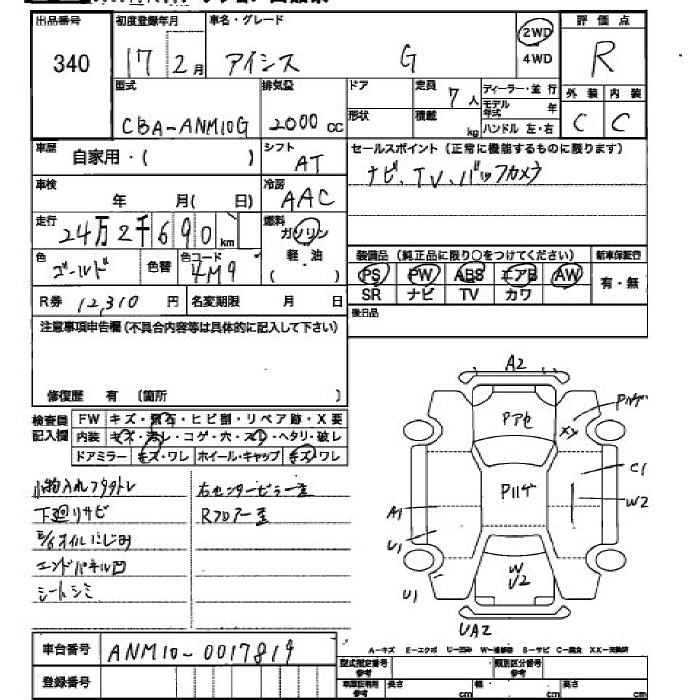 出品番号 初度登録年月 車名・グレード 2WD 評価点
340 17 2月 アイシス G 4WD R
型式 排気量 ドア 定員 7人 ディーラー・並行 外装 内装
CBA-ANM10G 2000cc 形状 積載 kg モデル年式 年 C C
ハンドル 左・右
車歴 自家用・( ) シフト AT セールスポイント(正常に機能するものに限ります)
ナビ、TV、バックカメラ
車検 年 月( 日) 冷房 AAC
走行 24万2千690km 燃料 ガソリン
軽油
( )
色 ゴールド 色替 色コード 4M9
装備品(純正品に限り○をつけてください) 新車保証行
PS PW ABS エアB AW 有・無
SR ナビ TV カワ
R券 12,310円 名変期限 月 日
後日品
注意事項申告欄(不具合内容等は具体的に記入して下さい)
修復歴 有 (箇所 )
検査員記入欄 FW キズ・飛石・ヒビ割・リペア跡・X要
内装 キズ・汚レ・コゲ・穴・スレ・ヘタリ・破レ
ドアミラー キズ・ワレ ホイール・キャップ キズ・ワレ
小物入れフタトレ 右センターピラー歪
下廻リサビ Rフロアー歪
E/Gオイルにじみ
エンドパネル凹
シートシミ
A2
Pハゲ
Pアセ
メケ
C1
Pハゲ
W2
A1
U1
W
U2
U1
UA2
A-キズ E-エクボ U-凹み W-補修跡 S-サビ C-腐食 XX-交換済
車台番号 ANM10-0017819
登録番号
型式指定番号 参考 類別区分番号 参考
長さ cm 幅 cm 高さ cm